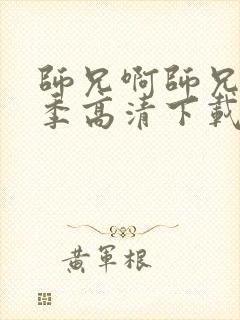 師兄啊師兄
季高清下載
黃軍根